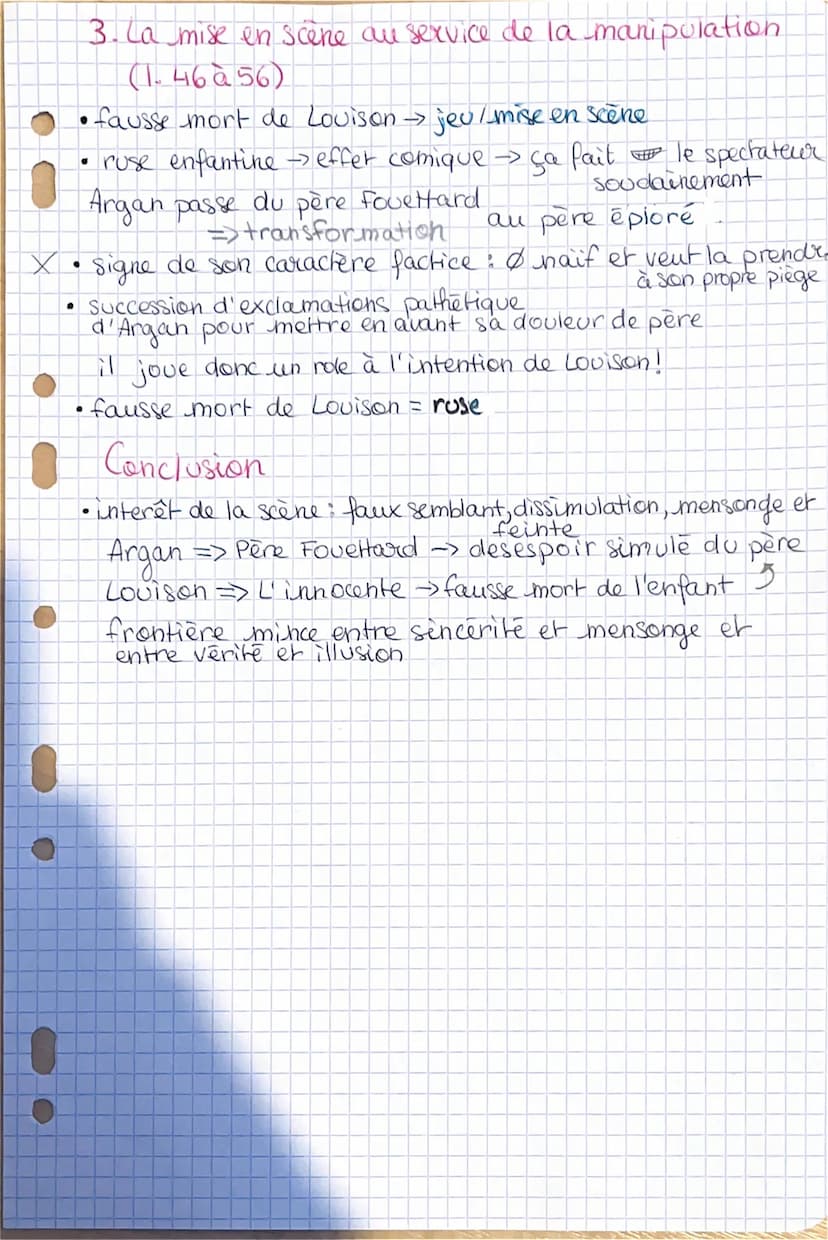 3. La mise en scène au service de la manipulation
(l. 46 à 56)
• fausse mort de Louison → jeu/mise en scène
• ruse enfantine → effet comique → ça fait le spectateur
soudainement
Argan passe du père Fouettard au père éploré.
=> transformation
X • signe de son caractère factice : Ø naïf et veut la prendre
à son propre piège
• succession d'exclamations pathétique
d'Argan pour mettre en avant sa douleur de père
il joue donc un role à l'intention de Louison !
• fausse mort de Louison = ruse
Conclusion
• interêt de la scène : faux semblant, dissimulation, mensonge et
feinte
Argan => Père Fouettard -> desespoir simulé du père
Louison => L'innocente → fausse mort de l'enfant ⤴
frontière mince entre sincérité et mensonge et
entre vérité et illusion